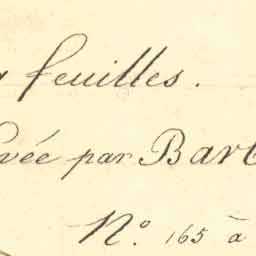 feuilles.
vée par Bart
N.° 165 à